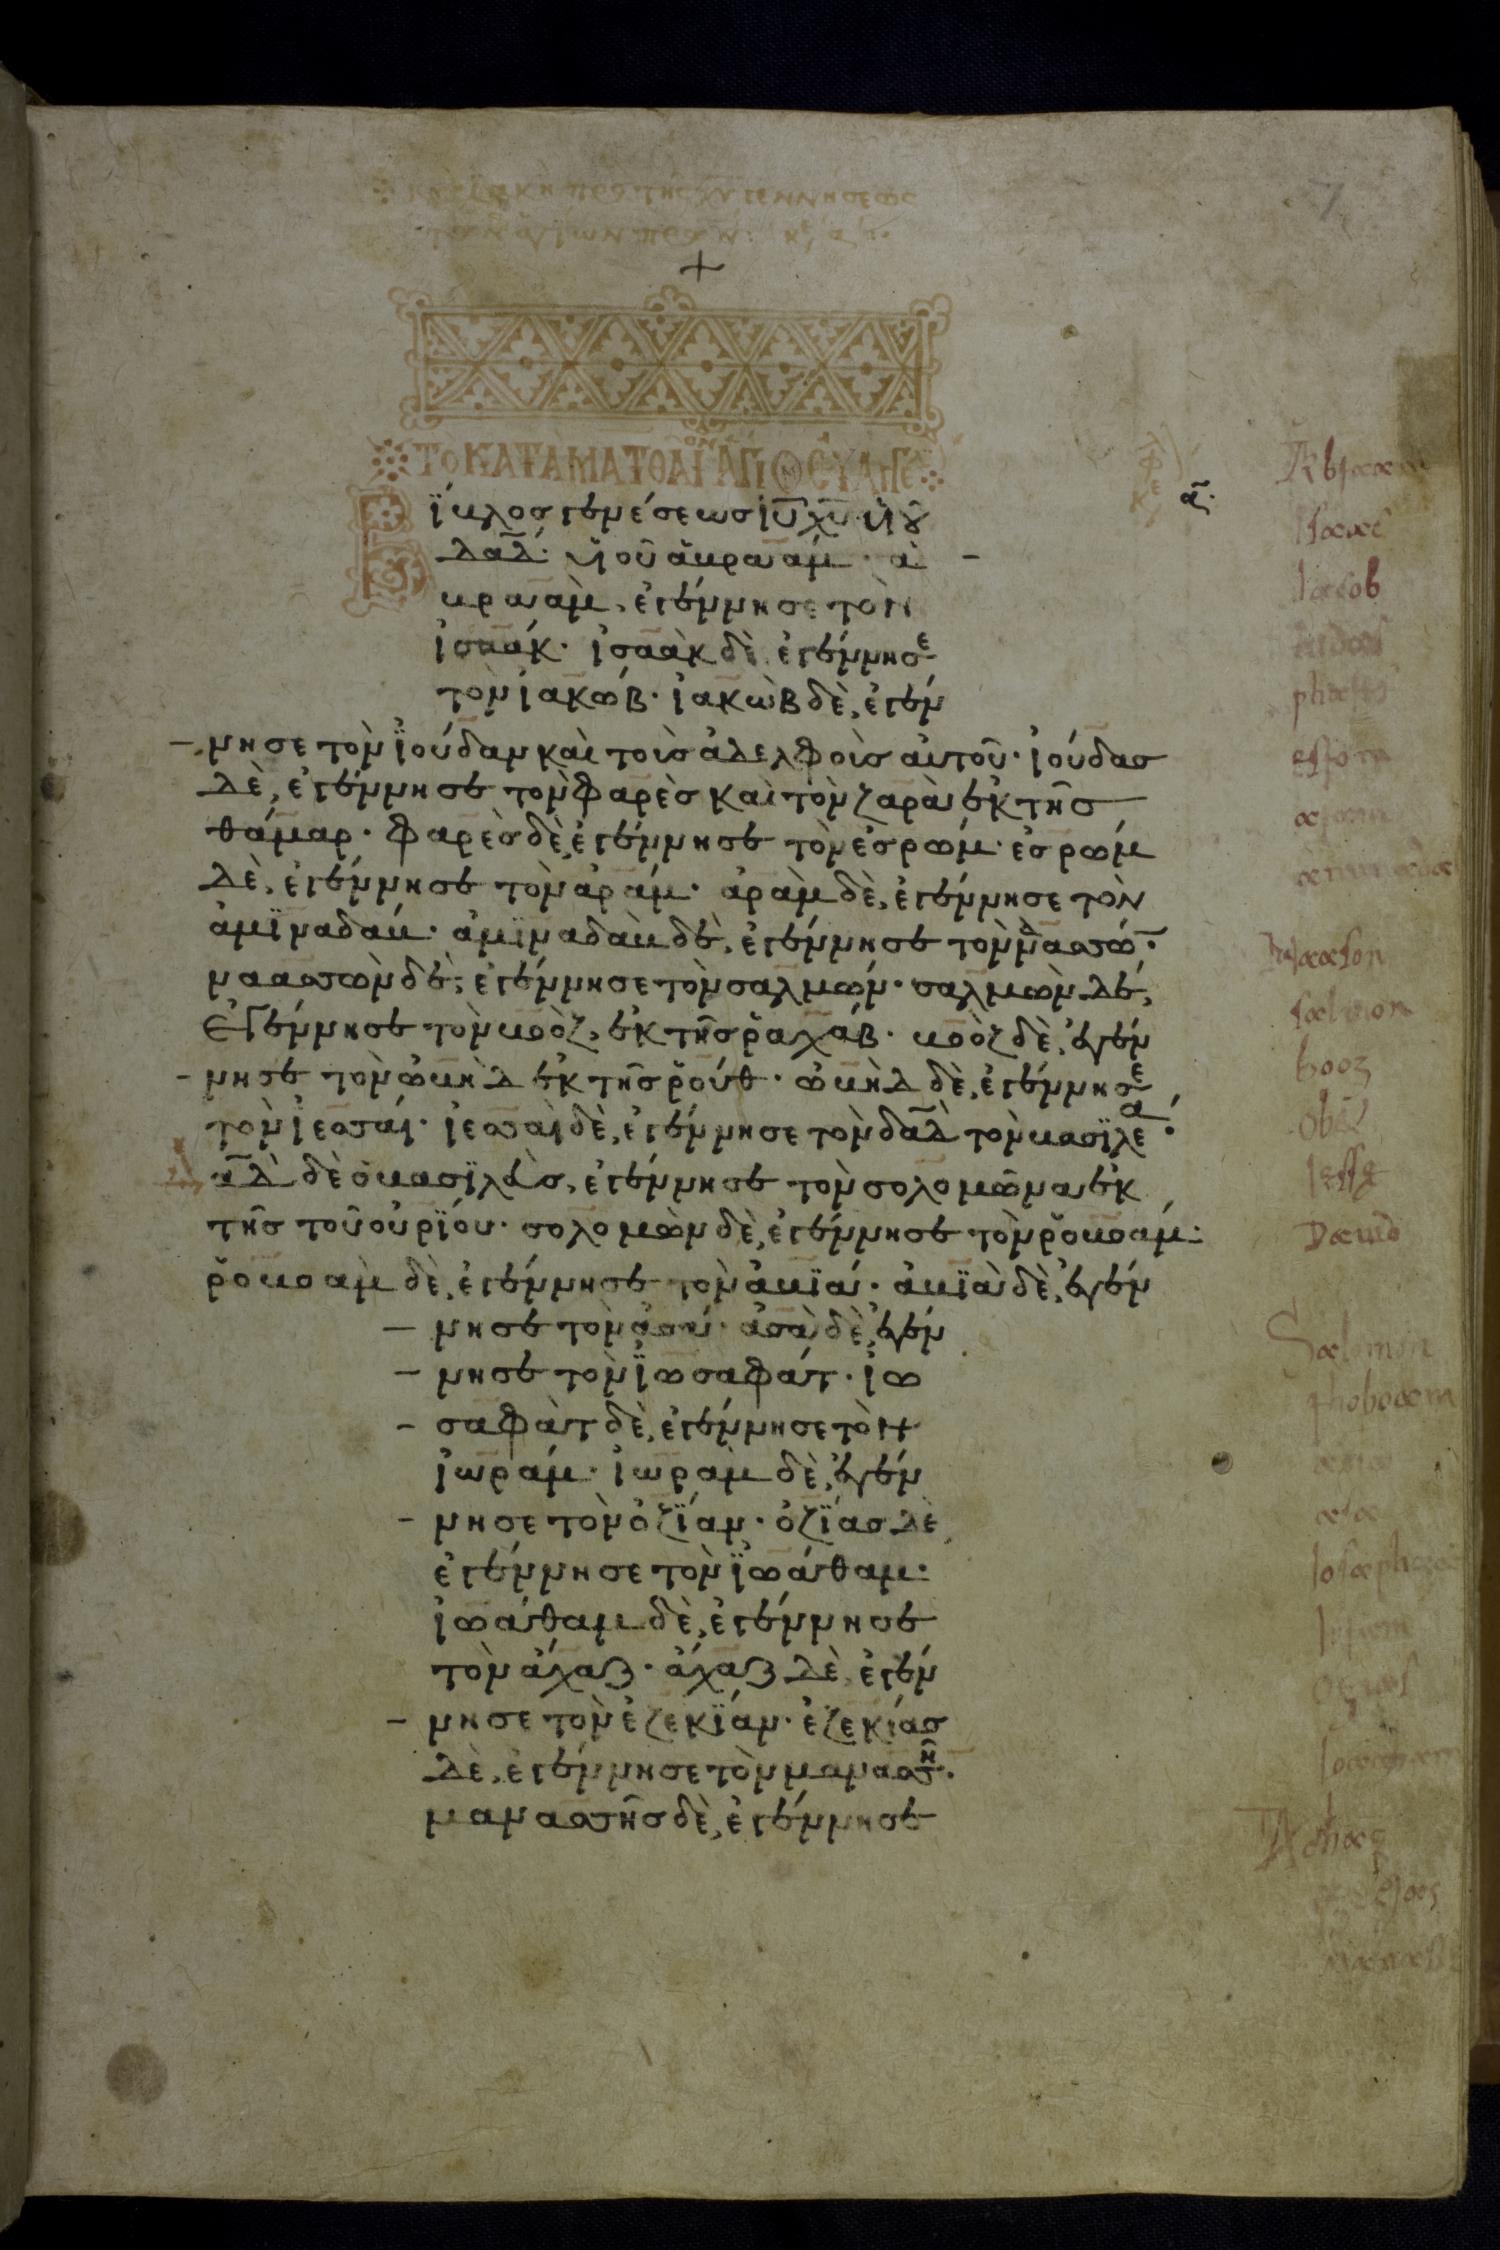 κυριακη προ της χυ γεννησεως
των αγιων πρων
7
+
ΤΟ ΚΑΤΑ ΜΑΤΘΑΙΟΝ ΑΓΙΟΝ ΕΥΑΓΓΕ
Βίβλος γενέσεως ιυ χυ υἱου
δαδ· υἱοῦ ἀβραάμ· ἀ
βραὰμ, ἐγέννησε τὸν
ἰσαάκ· ἰσαὰκ δὲ, ἐγέννησε
τὸν ἰακώβ· ἰακὼβ δὲ, ἐγέν
νησε τὸν ἰούδαν καὶ τοὺς ἀδελφοὺς αὐτοῦ· ἰούδας
δὲ, ἐγέννησε τὸν φαρὲς καὶ τὸν ζαρὰ ἐκ τῆς
θάμαρ· φαρὲς δὲ, ἐγέννησε τὸν ἐσρώμ· ἐσρώμ
δὲ, ἐγέννησε τὸν ἀράμ· ἀρὰμ δὲ, ἐγέννησε τὸν
ἀμϊναδάβ· ἀμϊναδὰβ δὲ, ἐγέννησε τὸν ναασσώ·
ναασσὼν δὲ, ἐγέννησε τὸν σαλμών· σαλμὼν δέ,
ἐγέννησε τὸν βοὸζ, ἐκ τῆς ῥαχάβ· βοὸζ δὲ, ἐγέν
νησε τὸν ὠβὴδ ἐκ τῆς ῥούθ· ὠβὴδ δὲ, ἐγέννησε
τὸν ἰεσσαί· ἰεσσαὶ δὲ, ἐγέννησε τὸν δαδ τὸν βασϊλέα·
δαδ δὲ ὁ βασϊλεὺς, ἐγέννησε τὸν σολομῶνα ἐκ
τῆς τοῦ οὐρϊου· σολομὼν δὲ, ἐγέννησε τὸν ῥοβοάμ·
ῥοβοὰμ δὲ, ἐγέννησε τὸν ἀβϊά· ἀβϊὰ δὲ, ἐγέν
νησε τὸν ἀσά· ἀσὰ δὲ, ἐγέν
νησε τὸν ἰωσαφάτ· ἰω
σαφὰτ δὲ, ἐγέννησε τὸν
ἰωράμ· ἰωρὰμ δὲ, ἐγέν
νησε τὸν ὀζϊαν· ὀζϊας δὲ
ἐγέννησε τὸν ἰωάθαμ·
ἰωάθαμ δὲ, ἐγέννησε
τὸν ἄχαζ· ἄχαζ δὲ, ἐγέν
νησε τὸν ἐζεκϊαν· ἐζεκίας
δὲ, ἐγέννησε τὸν μανασσῆ·
μανασσῆς δὲ, ἐγέννησε
α·
Abraam
Isaac
Iacob
Iudas
phares
esrom
aram
aminadab
Naason
salmon
booz
obed
Iesse
Dauid
Salomon
rhoboam
abia
asa
Iosaphat
Ioram
ozias
Ioatham
Achaz